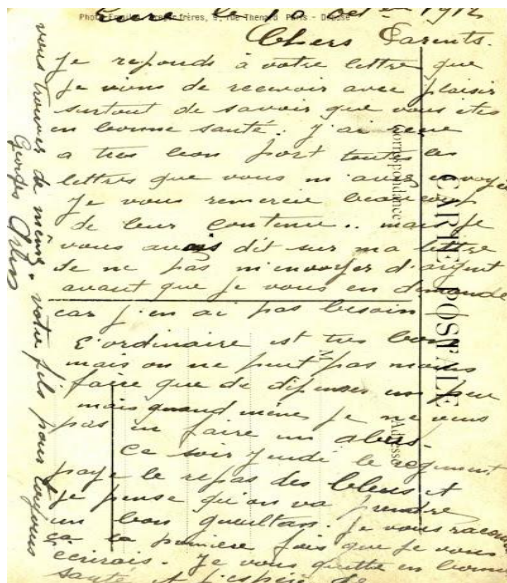 le 10 octbre 1912
Chers Parents.
je reponds à votre lettre que
je viens de recevoir avec plaisir
surtout de savoir que vous êtes
en bonne santé. j'ai reçu
a tres bon port toutes les
lettres que vous m'avez envoyé
je vous remercie beaucoup
de leur contenu.. mais je
vous avais dit sur ma lettre
de ne pas m'envoyer d'argent
avant que je vous en demande
car j'en ai pas besoin
L'ordinaire est tres bon
mais on ne peut pas moins
faire que de dépenser un peu
mais quand même je ne veus
pas en faire un abus.
Ce soir jeudi le regiment
paye le repas des bleus et
je pense qu'on va prendre
un bon gueulton. je vous racont
ça la premiere fois que je vous
écrirais. je vous quitte en bonne
santé et j'espère de
vous trouver de même. votre fils pour toujours
Georges
Photo
frères, 9, rue Thenard Paris - Déposé
CARTE POSTALE
Correspondance
Adresse
M